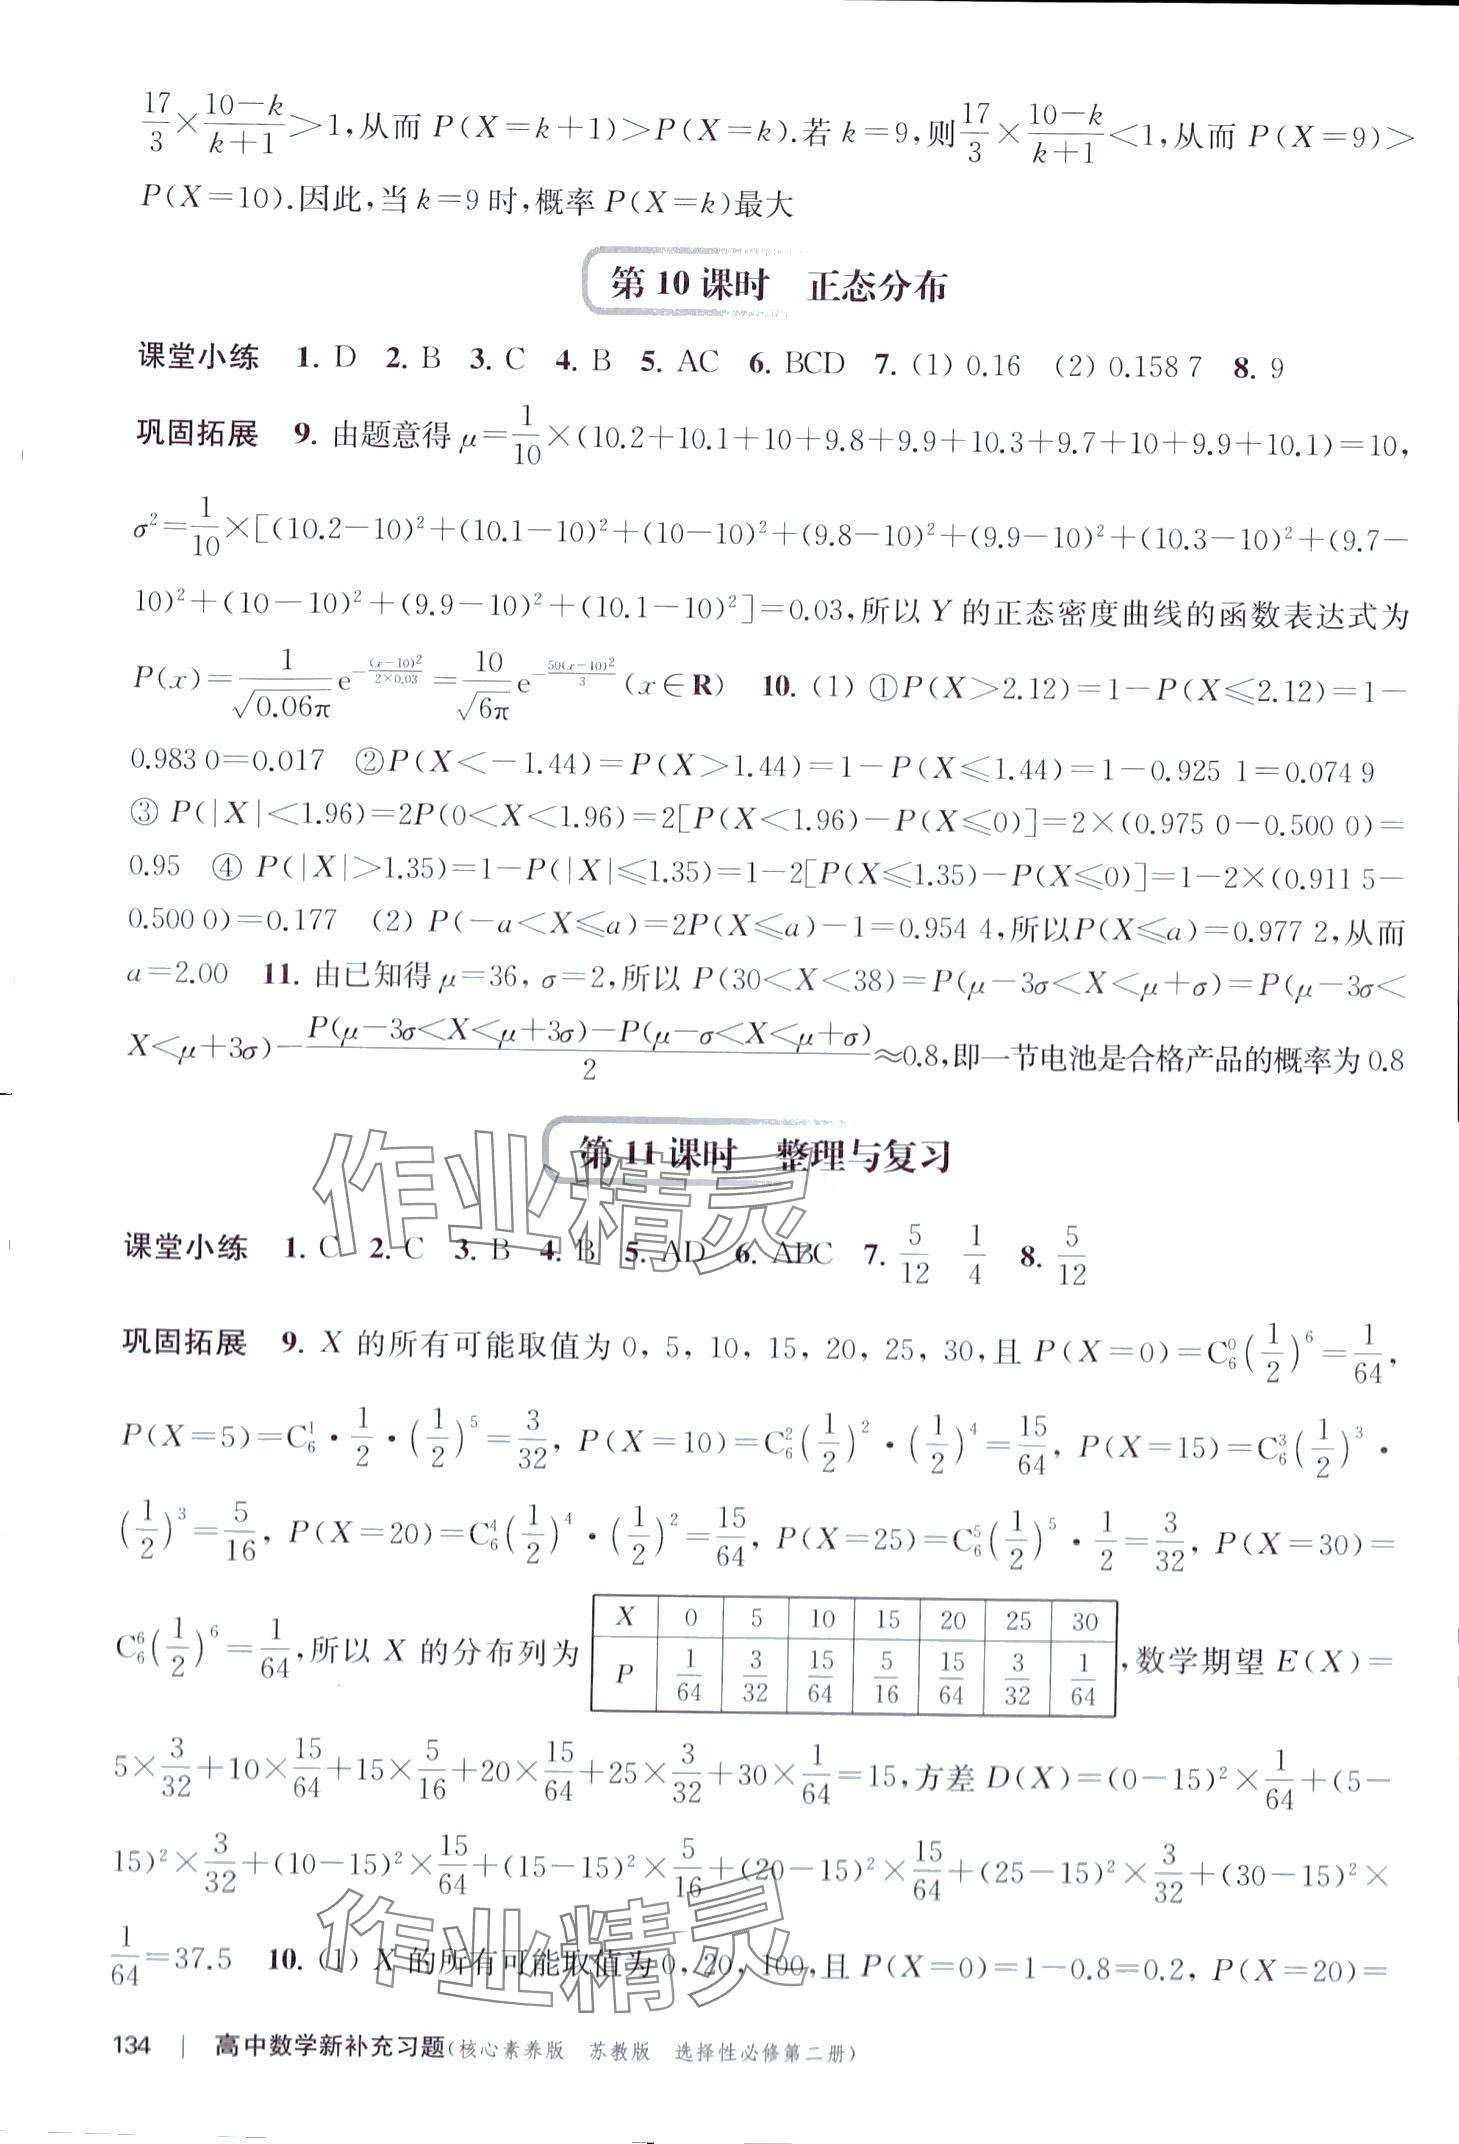 17/3×(10-k)/(k+1)>1,从而 P(X=k+1)>P(X=k).若 k=9,则17/3×(10-k)/(k+1)<1,从而 P(X=9)>
P(X=10).因此,当 k=9 时,概率 P(X=k)最大
第 10 课时 正态分布
课堂小练 1. D 2. B 3. C 4. B 5. AC 6. BCD 7. (1) 0.16 (2) 0.158 7 8. 9
巩固拓展 9. 由题意得 μ=1/10×(10.2+10.1+10+9.8+9.9+10.3+9.7+10+9.9+10.1)=10,
σ²=1/10×[(10.2-10)²+(10.1-10)²+(10-10)²+(9.8-10)²+(9.9-10)²+(10.3-10)²+(9.7-
10)²+(10-10)²+(9.9-10)²+(10.1-10)²]=0.03,所以 Y 的正态密度曲线的函数表达式为
P(x)=1/√(0.06π) e^(-(x-10)²/(2×0.03))=10/√(6π) e^(-50(x-10)²/3) (x∈R) 10. (1) ①P(X>2.12)=1-P(X⩽2.12)=1-
0.983 0=0.017 ②P(X<-1.44)=P(X>1.44)=1-P(X⩽1.44)=1-0.925 1=0.074 9
③ P(|X|<1.96)=2P(0<X<1.96)=2[P(X<1.96)-P(X⩽0)]=2×(0.975 0-0.500 0)=
0.95 ④ P(|X|>1.35)=1-P(|X|⩽1.35)=1-2[P(X⩽1.35)-P(X⩽0)]=1-2×(0.911 5-
0.500 0)=0.177 (2) P(-a<X⩽a)=2P(X⩽a)-1=0.954 4,所以P(X⩽a)=0.977 2,从而
a=2.00 11. 由已知得 μ=36, σ=2,所以 P(30<X<38)=P(μ-3σ<X<μ+σ)=P(μ-3σ<
X<μ+3σ)-(P(μ-3σ<X<μ+3σ)-P(μ-σ<X<μ+σ))/2≈0.8,即一节电池是合格产品的概率为 0.8
第 11 课时 整理与复习
作业精灵
课堂小练 1. C 2. C 3. B 4. B 5. AD 6. ABC 7. 5/12 1/4 8. 5/12
巩固拓展 9. X 的所有可能取值为 0, 5, 10, 15, 20, 25, 30,且 P(X=0)=C₆⁰(1/2)⁶=1/64,
P(X=5)=C₆¹·1/2·(1/2)⁵=3/32, P(X=10)=C₆²(1/2)²·(1/2)⁴=15/64, P(X=15)=C₆³(1/2)³·
(1/2)³=5/16, P(X=20)=C₆⁴(1/2)⁴·(1/2)²=15/64, P(X=25)=C₆⁵(1/2)⁵·1/2=3/32, P(X=30)=
C₆⁶(1/2)⁶=1/64,所以 X 的分布列为
X 0 5 10 15 20 25 30
P 1/64 3/32 15/64 5/16 15/64 3/32 1/64
,数学期望 E(X)=
5×3/32+10×15/64+15×5/16+20×15/64+25×3/32+30×1/64=15,方差 D(X)=(0-15)²×1/64+(5-
15)²×3/32+(10-15)²×15/64+(15-15)²×5/16+(20-15)²×15/64+(25-15)²×3/32+(30-15)²×
作业精灵
1/64=37.5 10. (1) X 的所有可能取值为 0, 20, 100,且 P(X=0)=1-0.8=0.2, P(X=20)=
134 | 高中数学新补充习题(核心素养版 苏教版 选择性必修第二册)